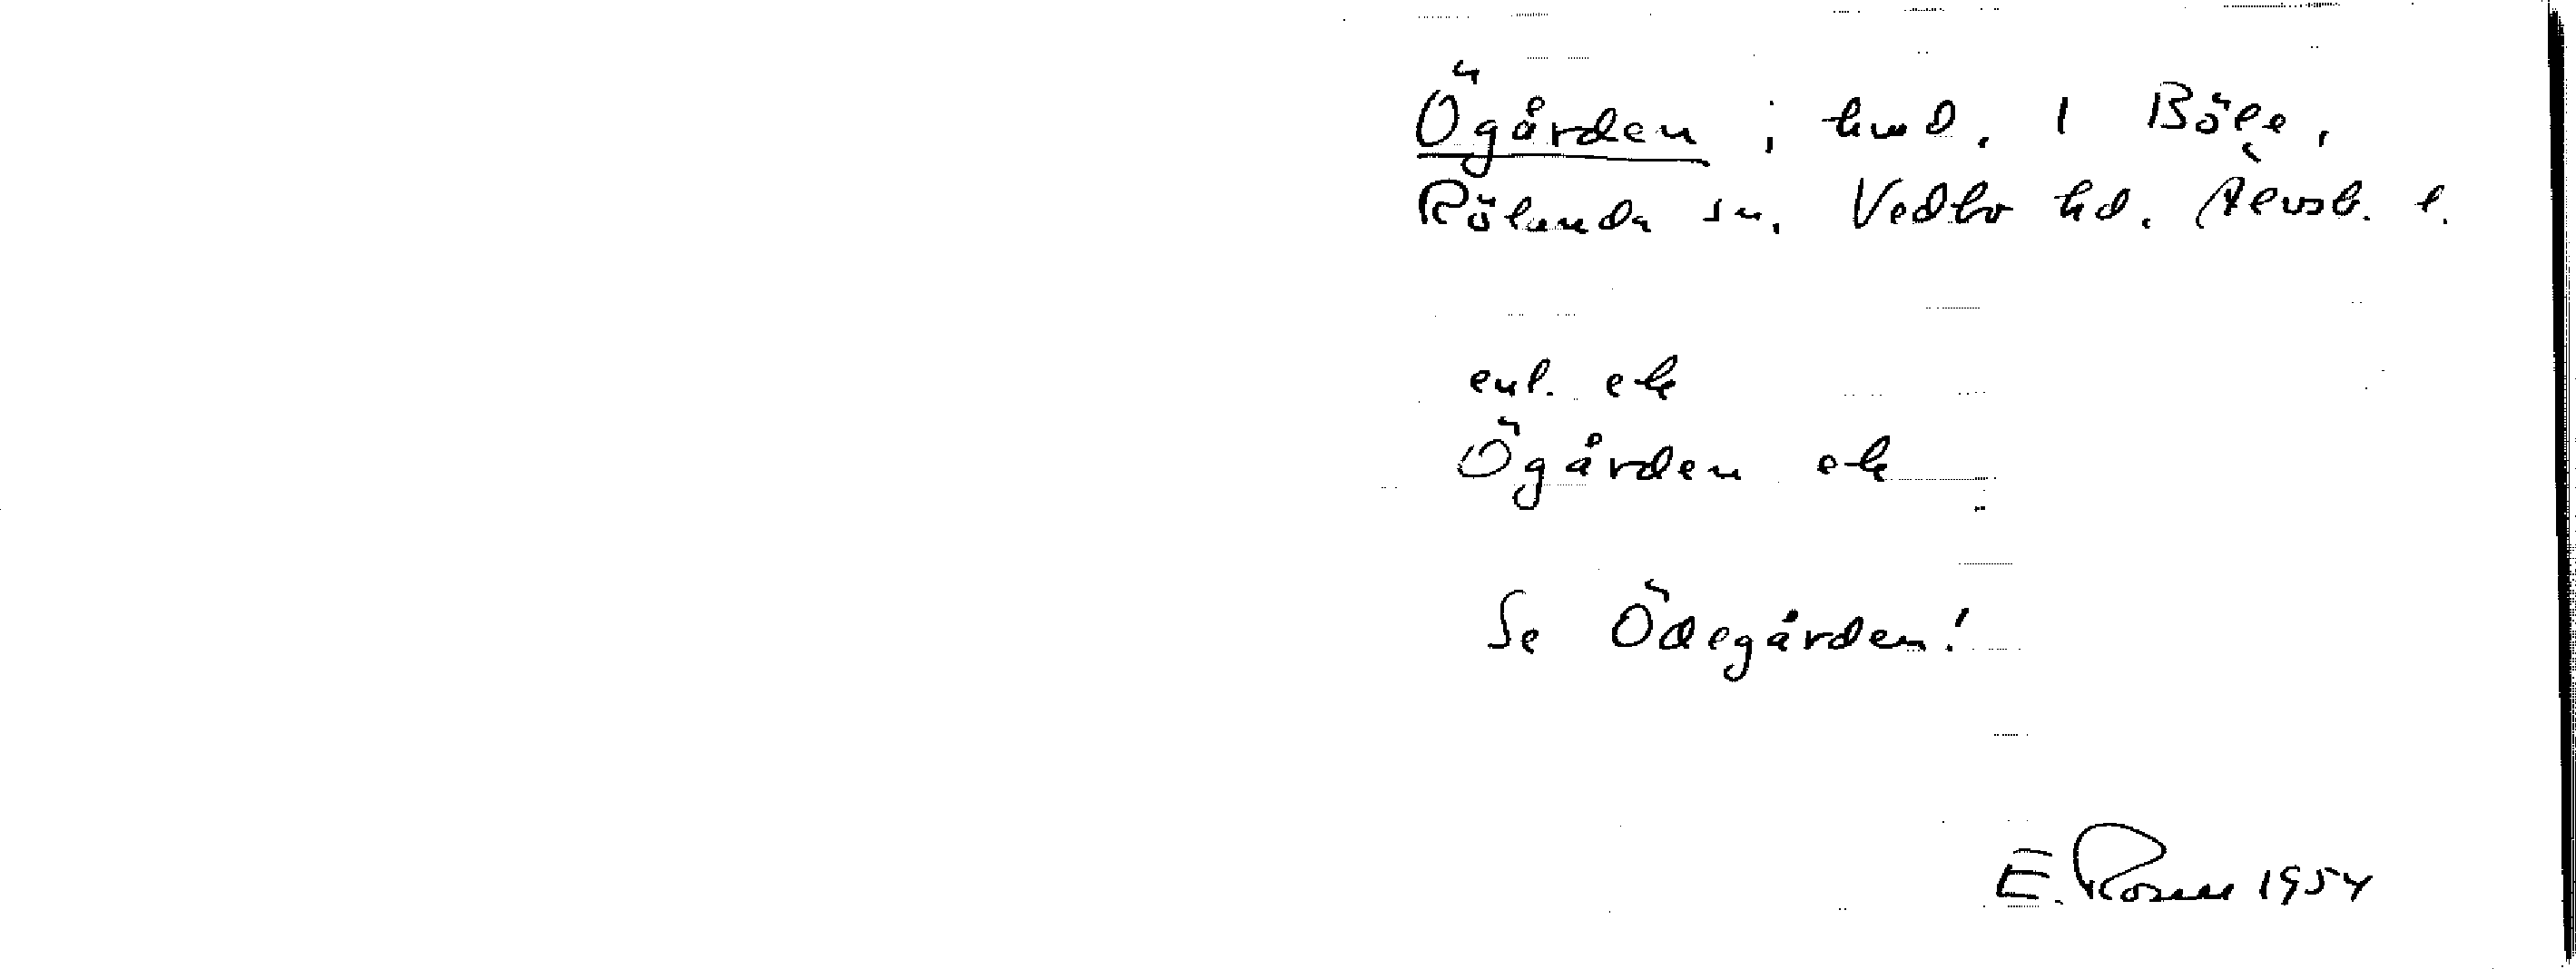 Ögården; hmd. 1 Böle,
Rölanda sn. Vedbo hd. Älvsb. l.
enl. ek
Ögården ek
Se Ödegården!
E. Rosell 1954